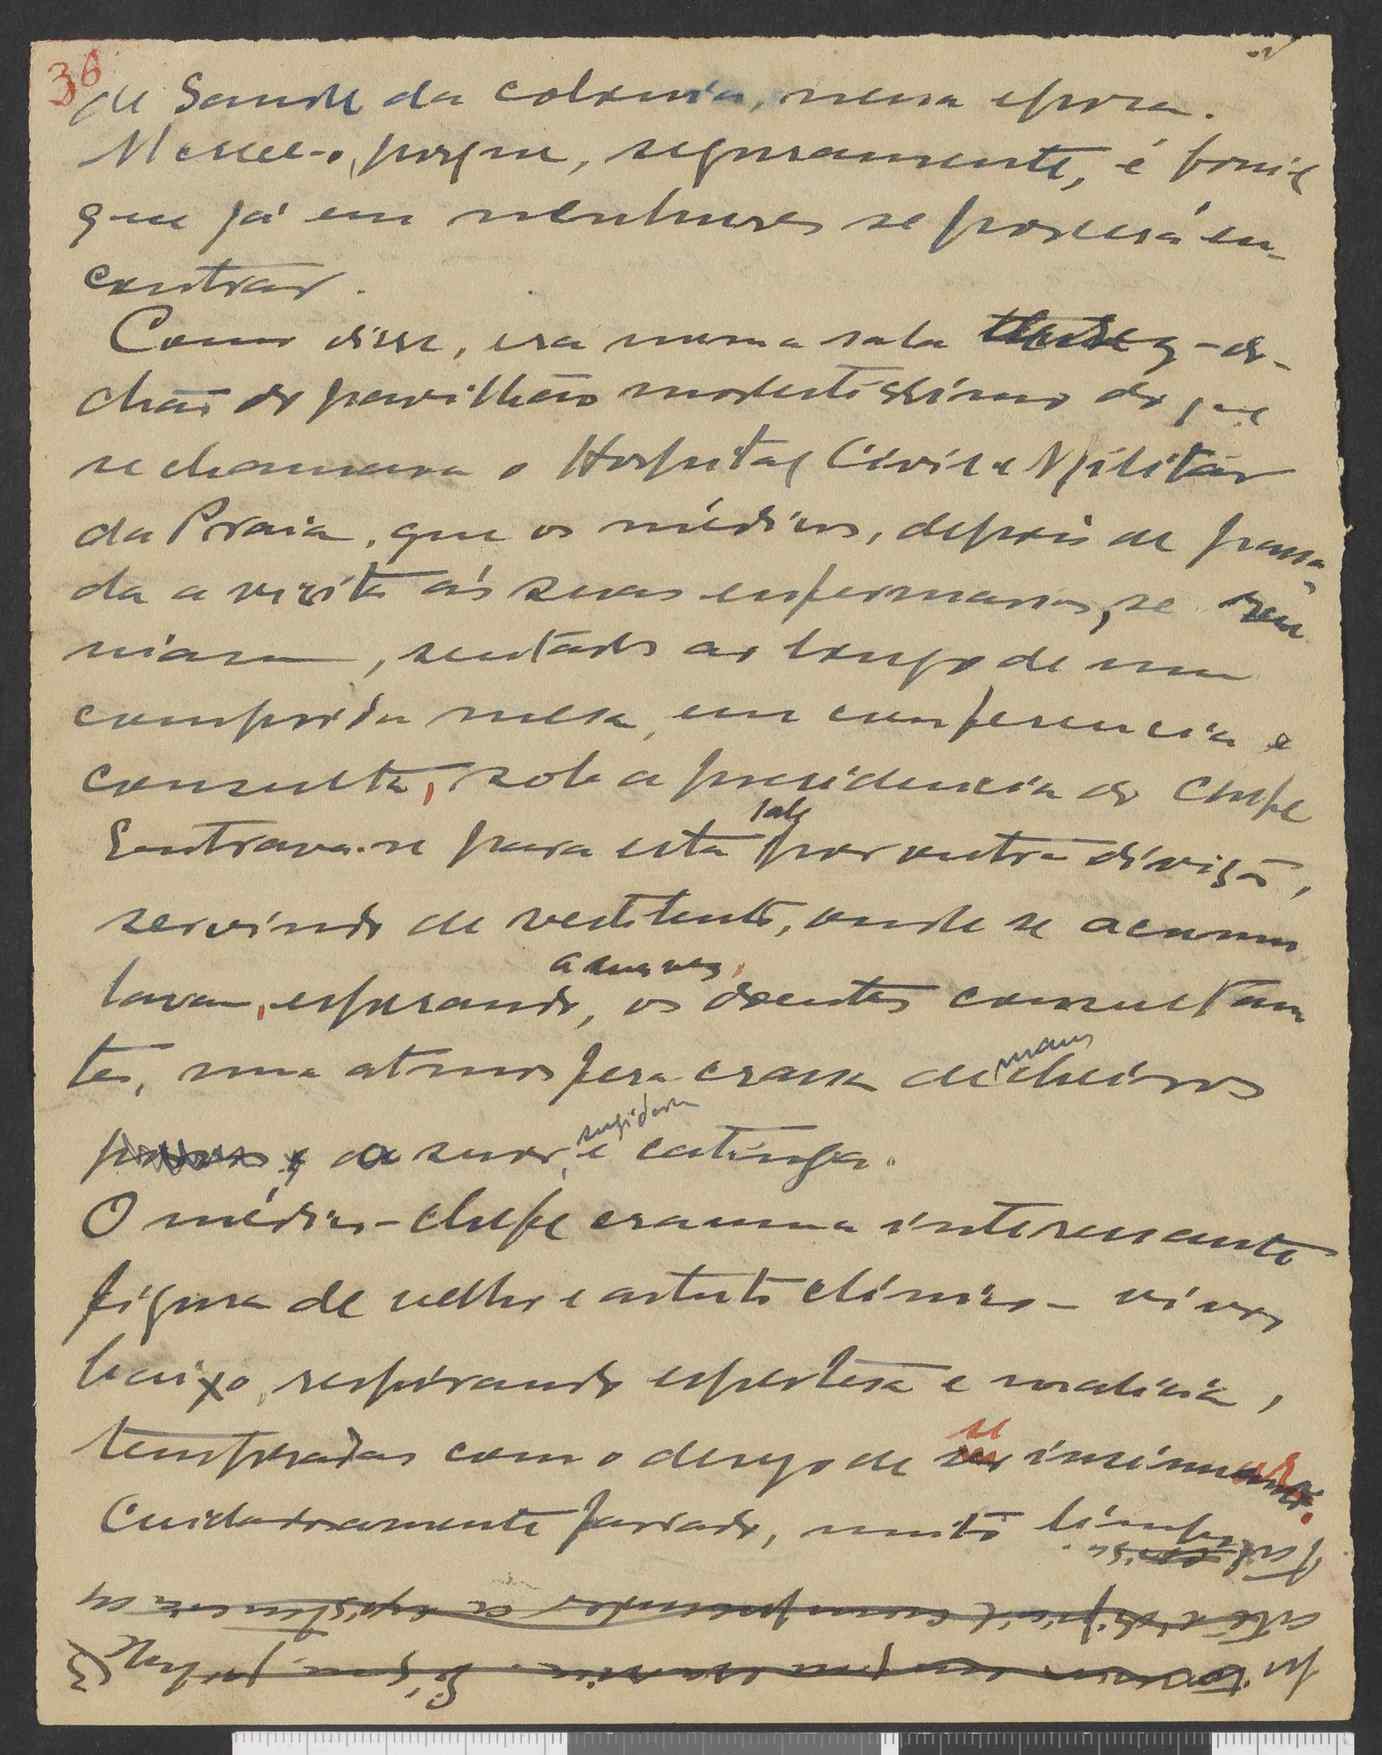 36
de Saude da colonia, nessa epoca.
Merece-o, porque, seguramente, é
que já em nenhures se poderá en-
contrar.
Como disse, era numa sala
chão do pavilhão modestissimo do que
se chamava o Hospital Civil e Militar
da Praia, que os médicos, depois de passa-
da a visita ás suas enfermarias, se reu-
niam, sentados ao longo de uma
comprida mesa, em conferencia e
consulta, sob a presidencia do Chefe
Entrava-se para esta sala por outra divisão,
servindo de vestibulo, onde se acumu
lavam, esperando, a sua vez, os doentes consultan
tes, numa atmosfera crassa de maus cheiros
a suor, sugidade e catinga.
O médico-chefe era uma interessante
figura de velho e astuto clínico - vivo,
baixo, respirando esperteza e malicia,
temperadas com o desejo de se insinuar.
Cuidadosamente fardado, muito limpo